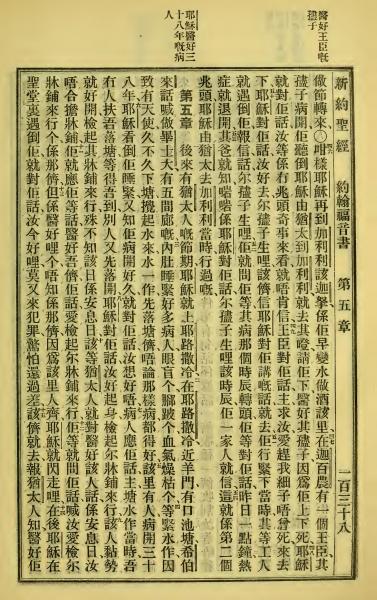 醫好王臣嘅孻子
耶穌醫好三十八年嘅病人
新約聖經 約翰福音書 第五章 一百三十八
做節轉來〇咁樣耶穌再到加利利該迦拏係佢早變水做酒該里在迦百農有一個王臣其
孻子病開佢聽倒耶穌由猶太到加利利就去其請佢下醫好其孻子因爲佢上下死耶穌
就對佢話汝等係冇兆頭奇事來看就唔肯信王臣對佢話主求汝愛趕我細子唔曾死來去
下耶穌對佢話汝好去尔孻子生哩該儕信耶穌對佢講嘅話就去佢行緊下當時其等工人
就遇倒佢報信話尔孻子生哩佢就問佢等其病那個時辰轉頭佢等對佢話昨日一點鐘熱
症就退開其爸就知啱啱係耶穌對佢話尔孻子生哩該時辰佢一家人就信這就係第二個
兆頭耶穌由猶太去加利利當時行過嘅
第五章 後來有猶太人嘅節期耶穌就上耶路撒冷在耶路撒冷近羊門有口池塘希伯
來話喊做畢士大有五間廊嘅內肚睡緊好多病人眼盲个腳跛个血氣燥枯个等緊水作因
致有天使久不久下塘攪起水來水一作先落塘儕唔論那樣病都得好該里有人病開三十
八年耶穌看倒佢睡緊又知佢病開好久就對佢話汝想好唔病人應佢話主塘水作當時吾
冇人扶吾落塘等得吾到別人又先落開耶穌對佢話好起身檢起尔牀鋪來行該人黏勢
就好開檢起其牀鋪來行殊不知該日係安息日該等猶太人就對醫好該人話係安息日汝
唔合擔牀鋪佢就應佢等話醫好吾儕佢話愛檢起尔牀鋪來行佢等就問佢話喊汝愛檢尔
牀鋪來行个係那儕但係醫好哩个唔知係那儕因爲該里人齊耶穌就閃走哩在後耶穌在
聖堂裏遇倒佢就對佢話汝今好哩莫又來犯罪驚怕還過差該儕就去報猶太人知醫好佢